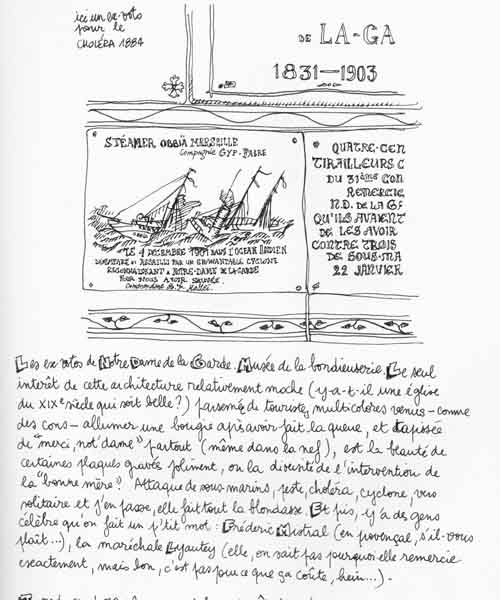 ici un ex-voto
pour le
CHOLÉRA 1884
DE LA-GA
1831—1903
STÉAMER OBBIA MARSEILLE
Compagnie CYP-FABRE
LE 4 DECEMBRE 1901 DANS L'OCEAN INDIEN
DEMATURE ET ASSAILLI PAR UN EPOUVANTABLE CYCLONE
RECONNAISSANT A NOTRE-DAME DE LA GARDE
POUR NOUS AVOIR SAUVÉS.
Commandant
QUATRE-CEN
TIRAILLEURS C
DU 31ème CON
REMERCIE
N.D. DE LA GF
QU'ILS AVAIENT
DE LES AVOIR
CONTRE TROIS
DE SOUS-MA
22 JANVIER
Les ex votos de Notre Dame de la Garde. Musée de la bondieuserie. Le seul
intérêt de cette architecture relativement moche (y-a-t-il une église
du XIXe siècle qui soit belle?) parsemée de touristes multicolores venus - comme
des cons - allumer une bougie après avoir fait la queue, et tapissée
de "merci, not'dame" partout (même dans la nef), est la beauté de
certaines plaques gravées joliment, ou la diversité de l'intervention de
la "bonne mère". Attaque de sous-marins, peste, choléra, cyclone, vers
solitaire et j'en passe, elle fait tout la blondasse. Et pis, y'a des gens
célèbre qu'on fait un p'tit mot: Fréderic Mistral (en provençal, s'il-vous
plaît...), la maréchale Lyautey (elle, on sait pas pourquoi elle remercie
exactement, mais bon, c'est pas pour ce que ça coûte, hein...).